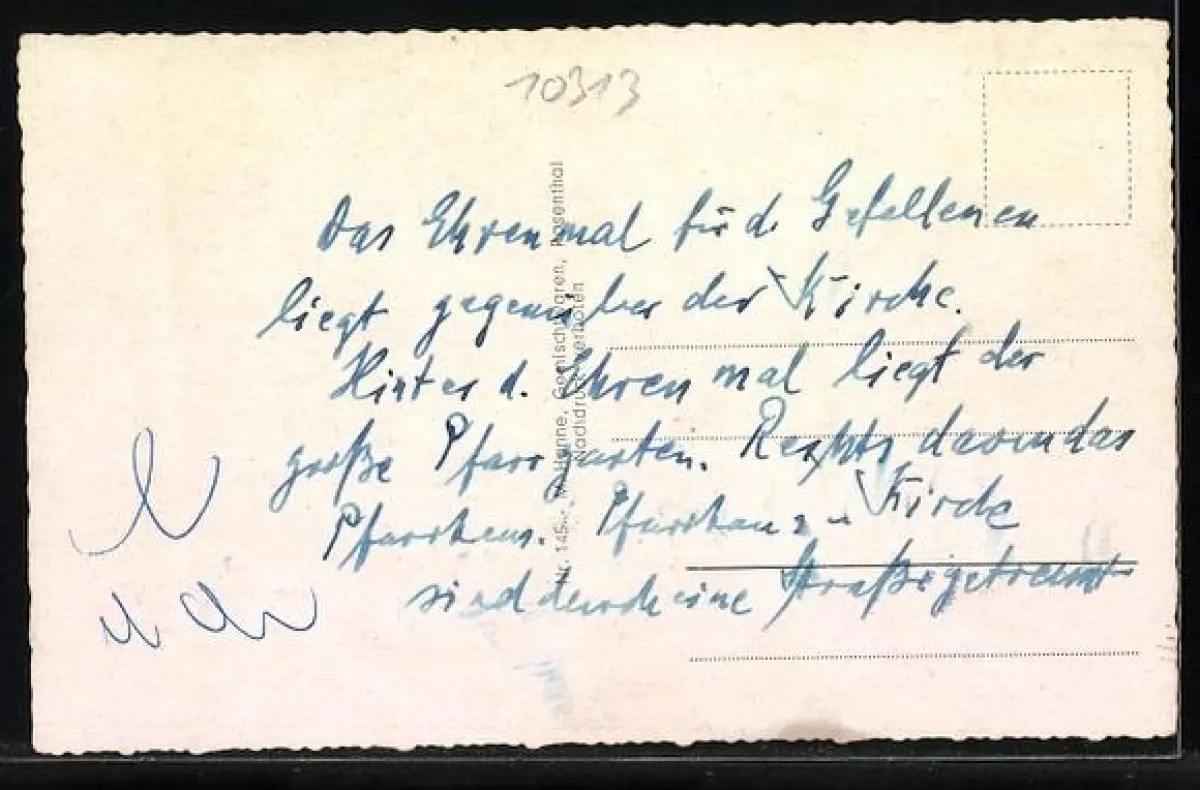 10313
Das Ehrenmal für d. Gefallenen
liegt gegenüber der Kirche.
Hinter d. Ehrenmal liegt der
große Pfarrgarten. Rechts davon das
Pfarrhaus. Pfarrhaus - Kirche
sind durch eine Straße getrennt
Nr. 145 Gemischtwaren, Rosenthal
Nachdruck verboten